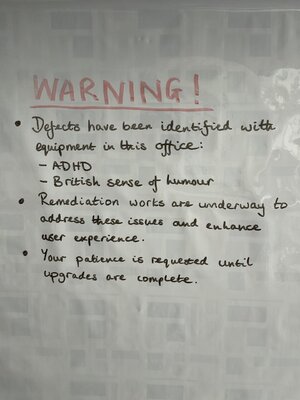 WARNING!
• Defects have been identified with
equipment in this office:
- ADHD
- British sense of humour
• Remediation works are underway to
address these issues and enhance
user experience.
• Your patience is requested until
upgrades are complete.